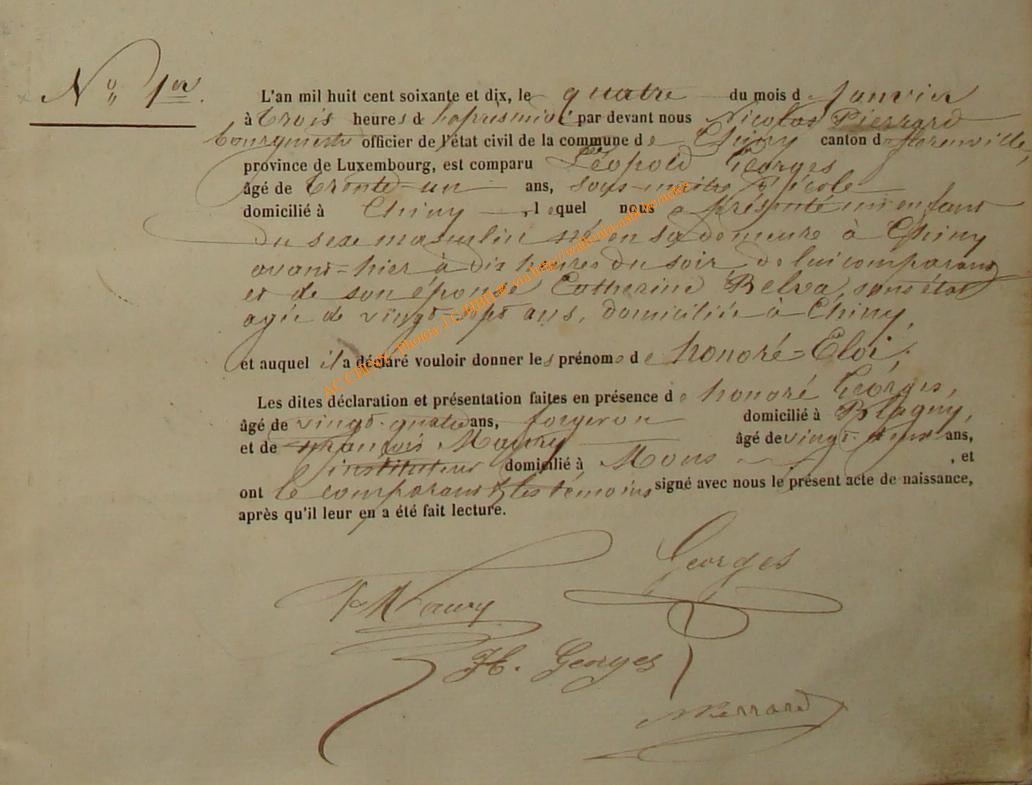 N° 1er.
L'an mil huit cent soixante et dix, le quatre du mois d Janvier
à trois heures d l'après midi par devant nous Nicolas Pierrard
bourgmestre officier de l'état civil de la commune de Chiny canton de florenville,
province de Luxembourg, est comparu Léopold Georges
âgé de trente-un ans, sous-maître d'école
domicilié à Chiny lequel nous a présenté un enfant
du sexe masculin né en sa demeure à Chiny
avant-hier à dix heures du soir, de lui comparant
et de son épouse Catherine Belva, sans état
agée de vingt-sept ans, domiciliée à Chiny,
et auquel il a déclaré vouloir donner les prénoms de honoré-Eloi.
Les dites déclaration et présentation faites en présence de honoré Georges,
âgé de vingt-quatre ans, forgeron domicilié à Blagny,
et de françois Maury âgé de vingt-deux ans,
instituteur domicilié à Mons , et
ont le comparant & les témoins signé avec nous le présent acte de naissance,
après qu'il leur en a été fait lecture.
Georges
Fs Maury
H. Georges
NPierrard